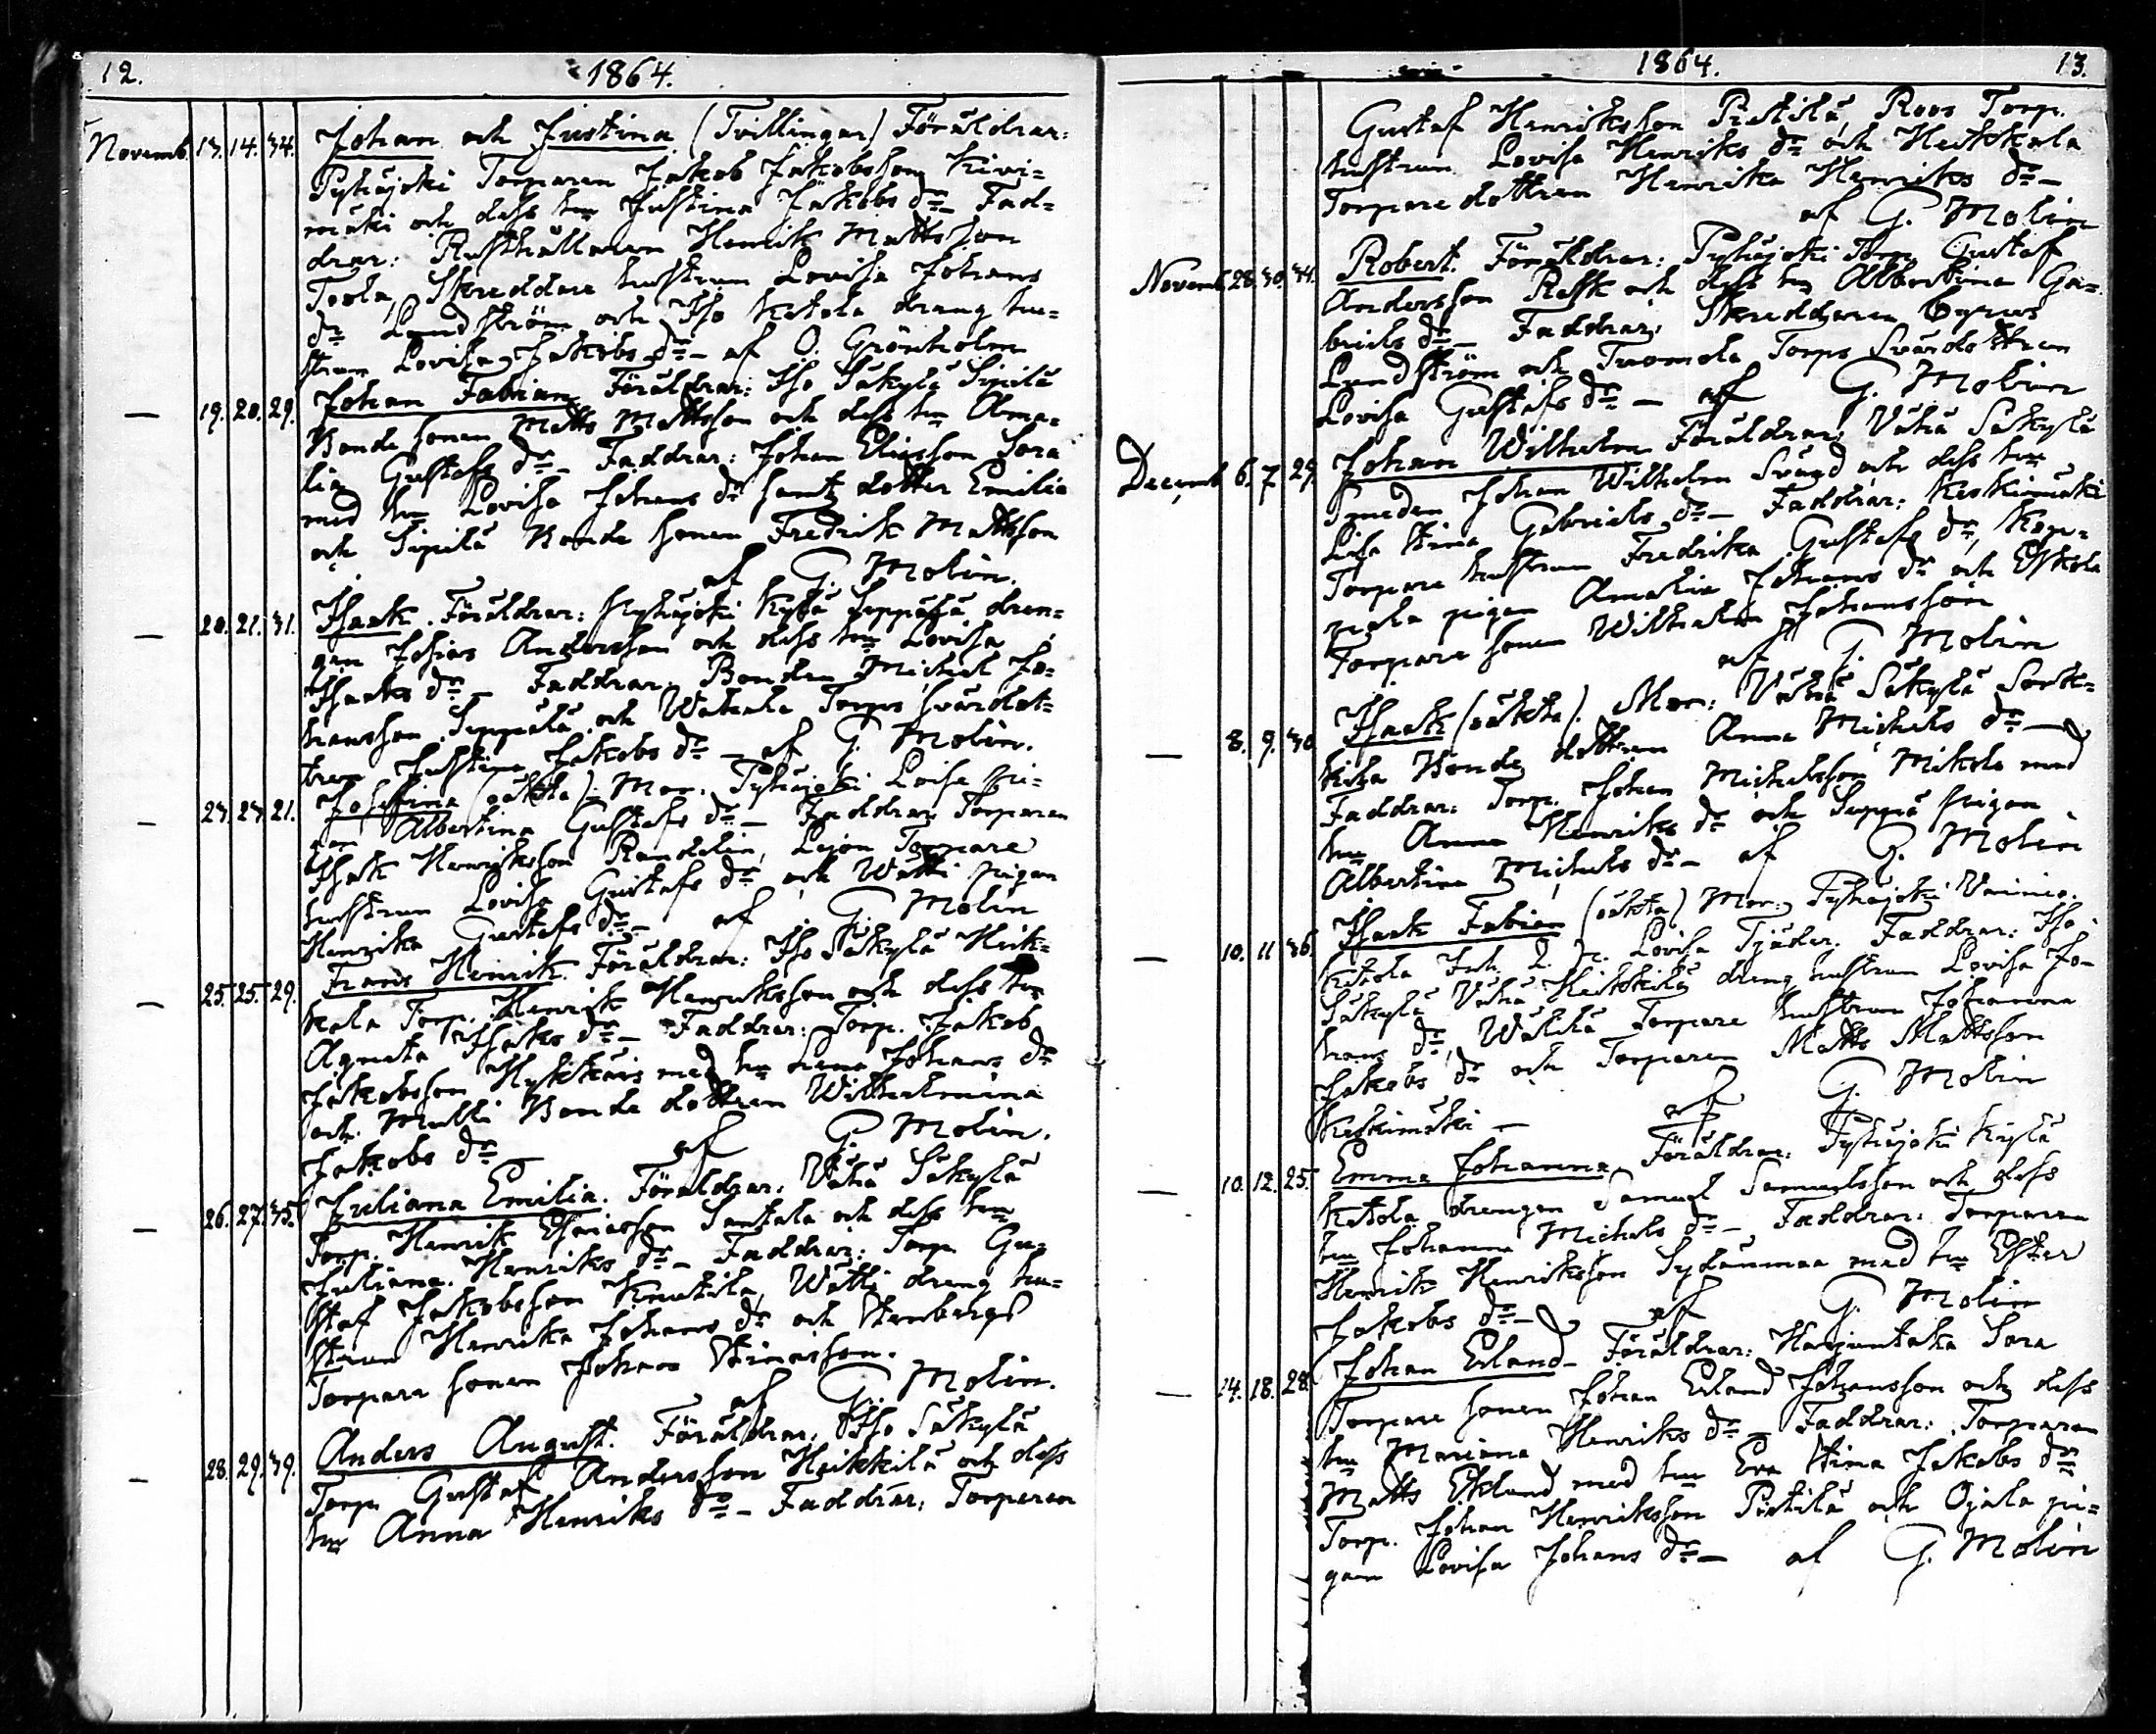 12. 1864.
Novemb. 13. 14. 34. Johan och Justina (Tvillingar) Föräldrar:
Pyhäjoki Torparen Jakob Jakobsson Kivi-
mäki och dess hu Justina Jakobs dr. Fad-
drar: Rusthållaren Henrik Mattsson
Toola, Skreddare hustrun Lovisa Johans
dr Lundström och Iso Ketola dräng hu-
strun Lovisa Jakobs dr – af O. Grönholm
— 19. 20. 29. Johan Fabian Föräldrar: Iso Säkylä Sipilä
Bonde sonen Matts Mattsson och dess hu Ama-
lia Gustafs dr – Faddrar: Johan Eliasson Sora
med hu Lovisa Johans dr samt dotter Emilia
och Sipilä Bonde sonen Fredrik Mattsson
af G. Molin.
— 20. 21. 31. Isaak. Föräldrar: Pyhäjoki Kylä Seppälä drän-
gen Josias Andersson och dess hu Lovisa
Isaaks dr – Faddrar: Bonden Michel Jo-
hansson Seppälä och Torps svärdot-
tren Justina Jakobs dr – af G. Molin.
— 23. 23. 21. Josefina (oäkta) – Mor: Pyhäjoki Loisa pi-
gan Albertina Gustafs dr – Faddrar: Torparen
Isak Henriksson Randelin, Lejon Torpare
hustrun Lovisa Gustafs dr och Wätti pigan
Henrika Gustafs dr – af G. Molin
— 25. 25. 29. Frans Henrik. Föräldrar: Iso Säkylä Heik-
kola Torp. Henrik Henriksson och dess hu
Agneta Isaks dr – Faddrar: Torp. Jakob
Jakobsson med hu Lena Johans dr
och Bonde dottren Wilhelmina
Jakobs dr af G. Molin.
— 26. 27. 35. Juliana Emilia. Föräldrar: Vähä Säkylä
Torp. Henrik Esaiasson Santala och dess hu
Juliana Henriks dr – Faddrar: Torp. Gu-
staf Jakobsson Knutila, Wätti dräng hu-
strun Henrika Johans dr och Stenbergs
Torpare sonen Johan
af G. Molin.
— 28. 29. 39. Anders August. Föräldrar: Iso Säkylä
Torp. Gustaf Andersson Heikkilä och dess
hu Anna Henriks dr – Faddrar: Torparen
1864. 13.
Gustaf Henriksson Pietilä, Roos Torp.
hustrun Lovisa Henriks dr och Heikkola
Torpare dottren Henrika Henriks dr –
af G. Molin
Novemb. 28. 30. 34. Robert. Föräldrar: Pyhäjoki Torp. Gustaf
Andersson Rask och dess hu Albertina Ga-
briels dr – Faddrar: Skreddaren Cyrus
Lundström och Tuomola Torps Svärdottren
Lovisa Gustafs dr – af G. Molin
Decemb. 6. 7 29. Johan Wilhelm Föräldrar: Vähä Säkylä
Smeden Johan Wilhelm Svärd och dess hu
Lisa Stina Gabriels dr – Faddrar: Keskimäki
Torpare hustrun Fredrika Gustafs dr, Kop-
pala pigan Amalia Johans dr och Eskola
Torpare sonen Wilhelm Johansson
af G. Molin
— 8. 9. 30. Isaak (oäkta). Mor: Vähä Säkylä Sork-
kila Bonde dottren Anna Michels dr –
Faddrar: Torp. Johan Michelsson Mikola med
hu Anna Henriks dr och Seppä pigan
Albertina Michels dr – af G. Molin
— 10. 11 36. Isaak Fabian (oäkta) Mor: Pyhäjoki
Ketola Inh. Lovisa Tjäder. Faddrar: Iso
Säkylä Vähä Heikkilä dräng hustrun Lovisa Jo-
hans dr, Torpare hustrun Johanna
Jakobs dr och Torparen Matts Mattsson
Keskimäki – af G. Molin
— 10. 12. 25. Emma Johanna. Föräldrar: Pyhäjoki Kylä
Ketola drängen Samuel Samuelsson och dess
hu Johanna Michels dr – Faddrar: Torparen
Henrik Henriksson Sydänmaa med hu Ester
Jakobs dr – af G. Molin
— 14. 18. 28. Johan Erland – Föräldrar: Harjuntaka Sora
Torpare sonen Johan Erland Johansson och dess
hu Mariana Henriks dr – Faddrar: Torparen
Matts Eklund med hu Eva Stina Jakobs dr
Torp. Johan Henriksson Pietilä och Ojala pi-
gan Lovisa Johans dr – af G. Molin